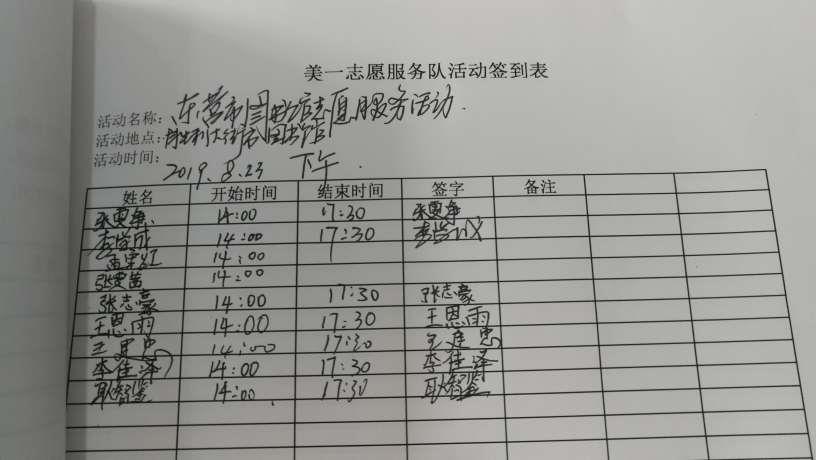 美一志愿服务队活动签到表
活动名称: 东营市图书馆志愿服务活动.
活动地点: 胜利大街市图书馆
活动时间: 2019.8.23 下午.
姓名 开始时间 结束时间 签字 备注
14:00 17:30
14:00 17:30
14:00
14:00
张志豪 14:00 17:30 张志豪
王恩雨 14:00 17:30 王恩雨
王建忠 14:00 17:30 王建忠
李佳泽 14:00 17:30 李佳泽
耿智鉴 14:00 17:30 耿智鉴